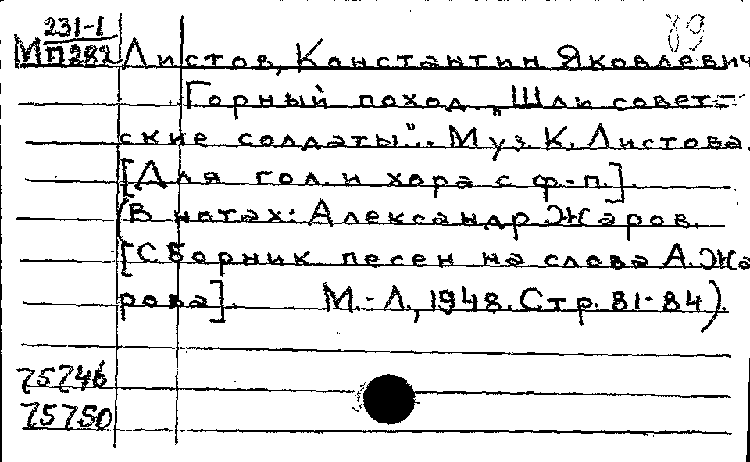 231-1
МП282
89
Листов, Константин Яковлевич
Горный поход „Шли совет=
ские солдаты".. Муз К. Листова.
[Для гол. и хора с ф-п.].
(В нотах: Александр Жаров.
[Сборник песен на слова А. Жа
рова]. М.-Л., 1948. Стр. 81-84).
75746
75750